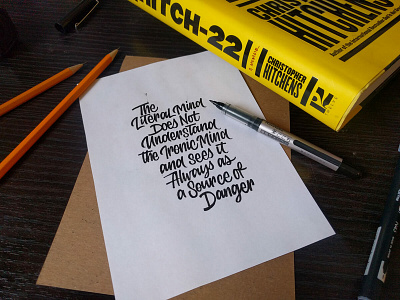 HITCH-22
CHRISTOPHER
HITCHENS
CHRIS
HITCHENS
The
Literal Mind
Does Not
Understand
the Ironic Mind
and sees it
Always as
a Source of
Danger